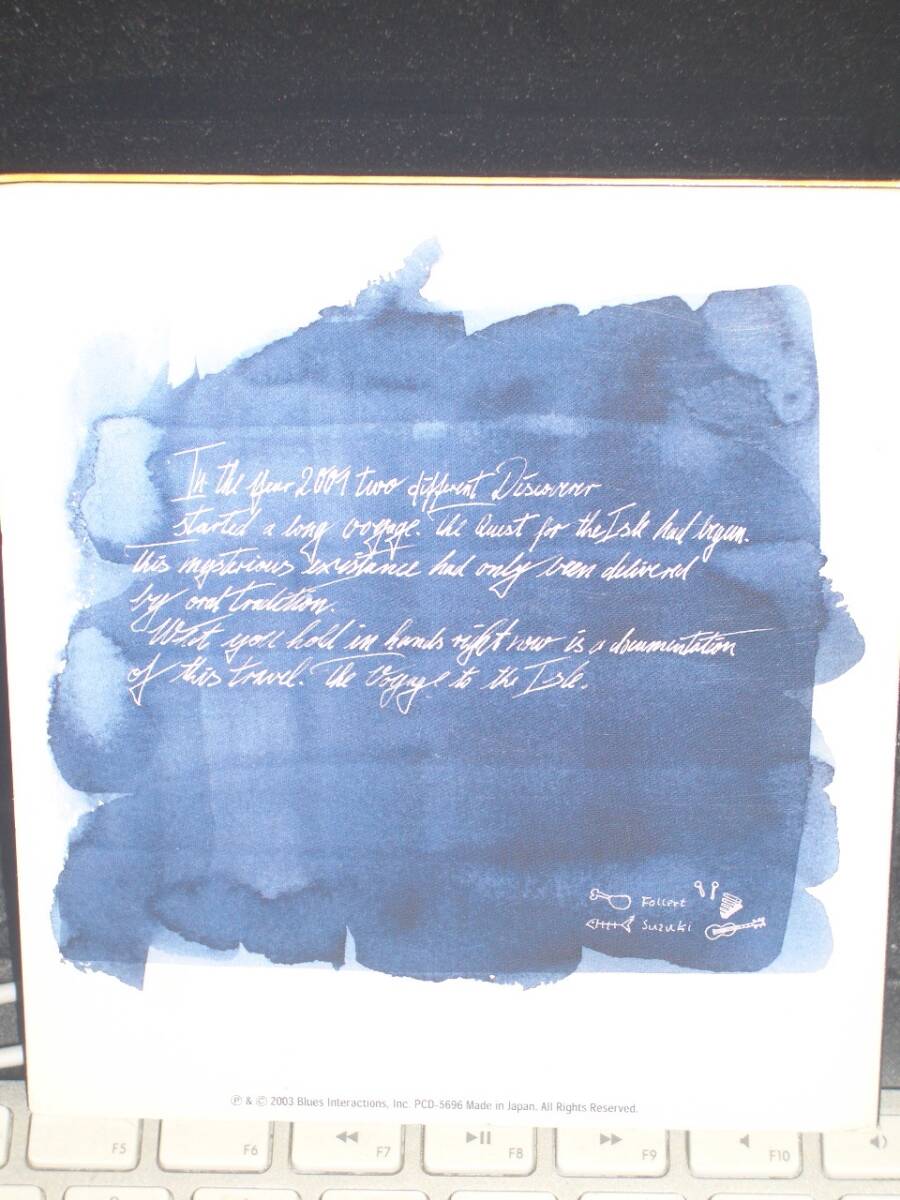 In the Year 2001 two different Discoverer
started a long voyage. The Quest for the Isle had begun.
This mysterious existance had only been delivered
by oral tradition.
What you hold in hands right now is a documentation
of this travel. The Voyage to the Isle.
Follert
Suzuki
℗ & © 2003 Blues Interactions, Inc. PCD-5696 Made in Japan. All Rights Reserved.
F5 F6 F7 F8 F9 F10